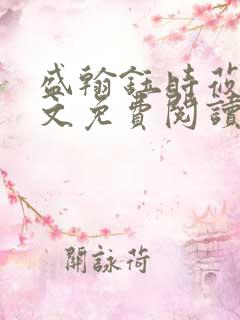 盛翰鈺時莜
文免費閱讀
關詠荷